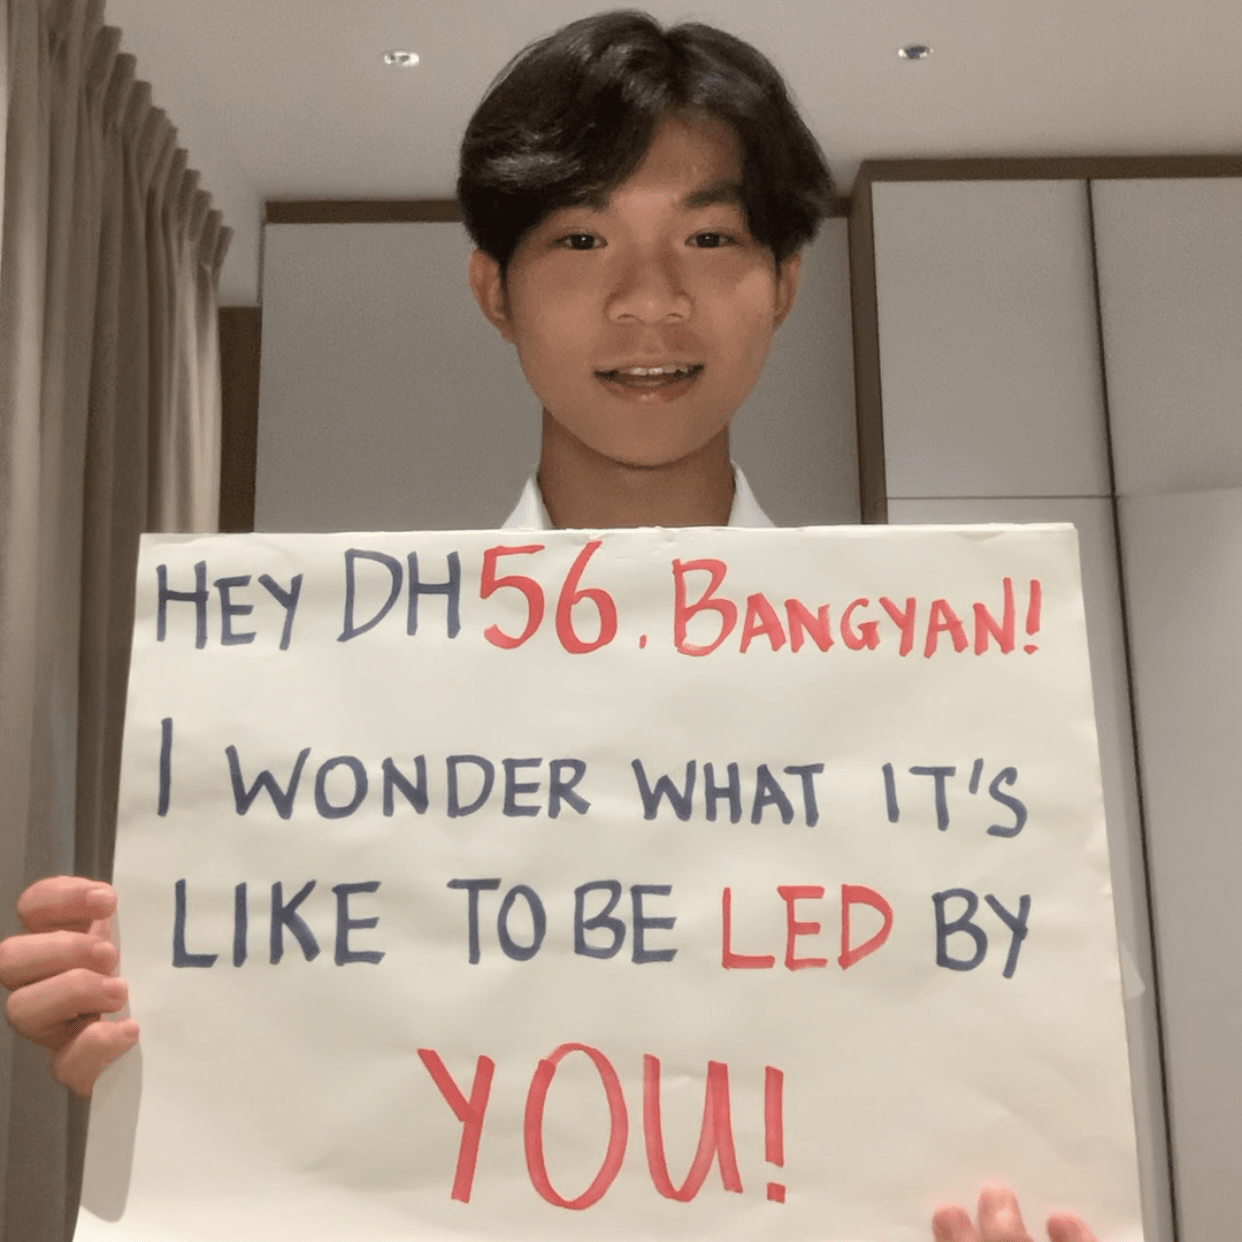 HEY DH56. BANGYAN!
I WONDER WHAT IT'S
LIKE TO BE LED BY
YOU!